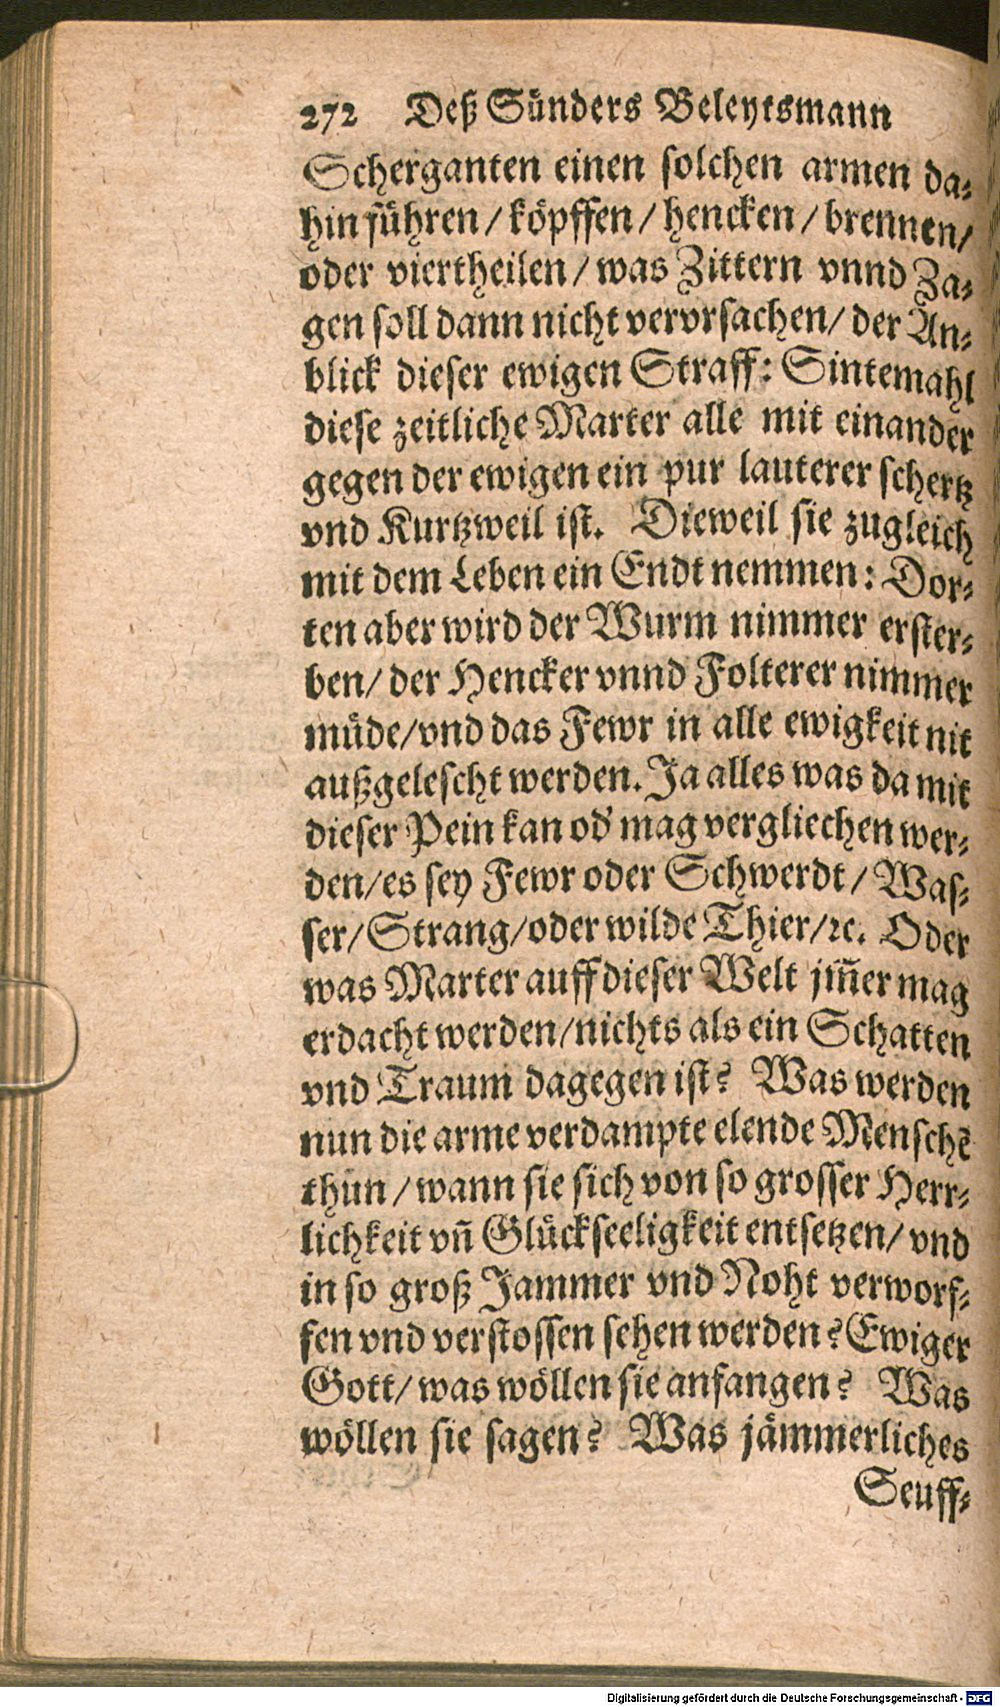 272 Deß Sünders Beleytsmann
Scherganten einen solchen armen da-
hin führen / köpffen / hencken / brennen/
oder viertheilen / was Zittern vnnd Za-
gen soll dann nicht vervrsachen/ der An-
blick dieser ewigen Straff: Sintemahl
diese zeitliche Marter alle mit einander
gegen der ewigen ein pur lauterer schertz
vnd Kurtzweil ist. Dieweil sie zugleich
mit dem Leben ein Endt nemmen: Dor-
ten aber wird der Wurm nimmer erster-
ben/ der Hencker vnnd Folterer nimmer
müde/vnd das Fewr in alle ewigkeit nit
außgelescht werden. Ja alles was da mit
dieser Pein kan od' mag vergliechen wer-
den/es sey Fewr oder Schwerdt / Was-
ser/Strang/oder wilde Thier/ꝛc. Oder
was Marter auff dieser Welt jm̃er mag
erdacht werden/nichts als ein Schatten
vnd Traum dagegen ist? Was werden
nun die arme verdampte elende Mensch̃e
thun / wann sie sich von so grosser Herr-
lichkeit vñ Glückseeligkeit entsetzen/ vnd
in so groß Jammer vnd Noht verworf-
fen vnd verstossen sehen werden? Ewiger
Gott/ was wöllen sie anfangen? Was
wöllen sie sagen? Was jämmerliches
Seuff-
Digitalisierung gefördert durch die Deutsche Forschungsgemeinschaft - DFG